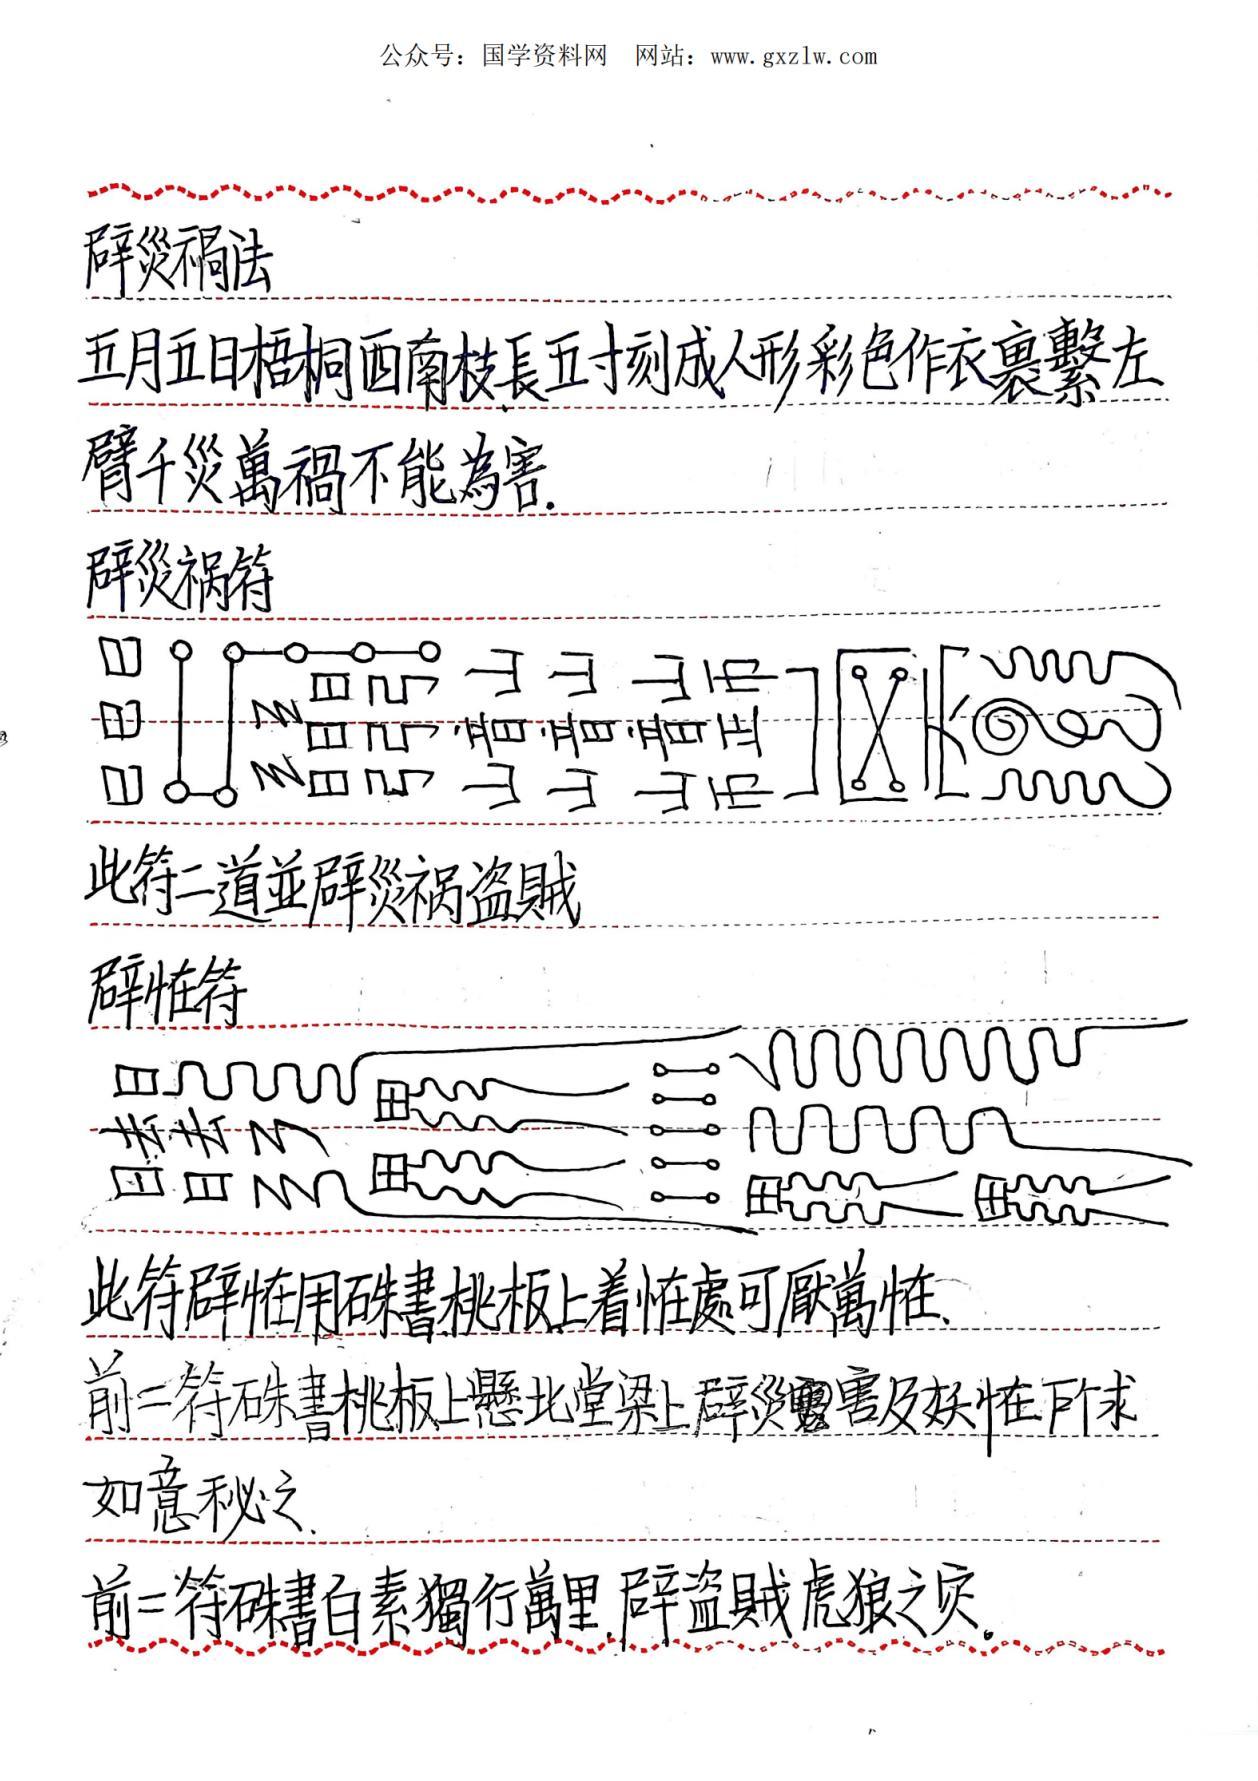 公众号：国学资料网　网站：www.gxzlw.com
辟災禍法
五月五日梧桐西南枝長五寸刻成人形彩色作衣裹繫左
臂千災萬禍不能為害.
辟災祸符
此符二道並辟災祸盗賊
辟恠符
此符辟恠用硃書桃板上着恠處可厭萬恠、
前二符硃書桃板上懸北堂梁上辟災害及妖恠所求
如意秘之.
前二符硃書白素獨行萬里.辟盗賊虎狼之灾。